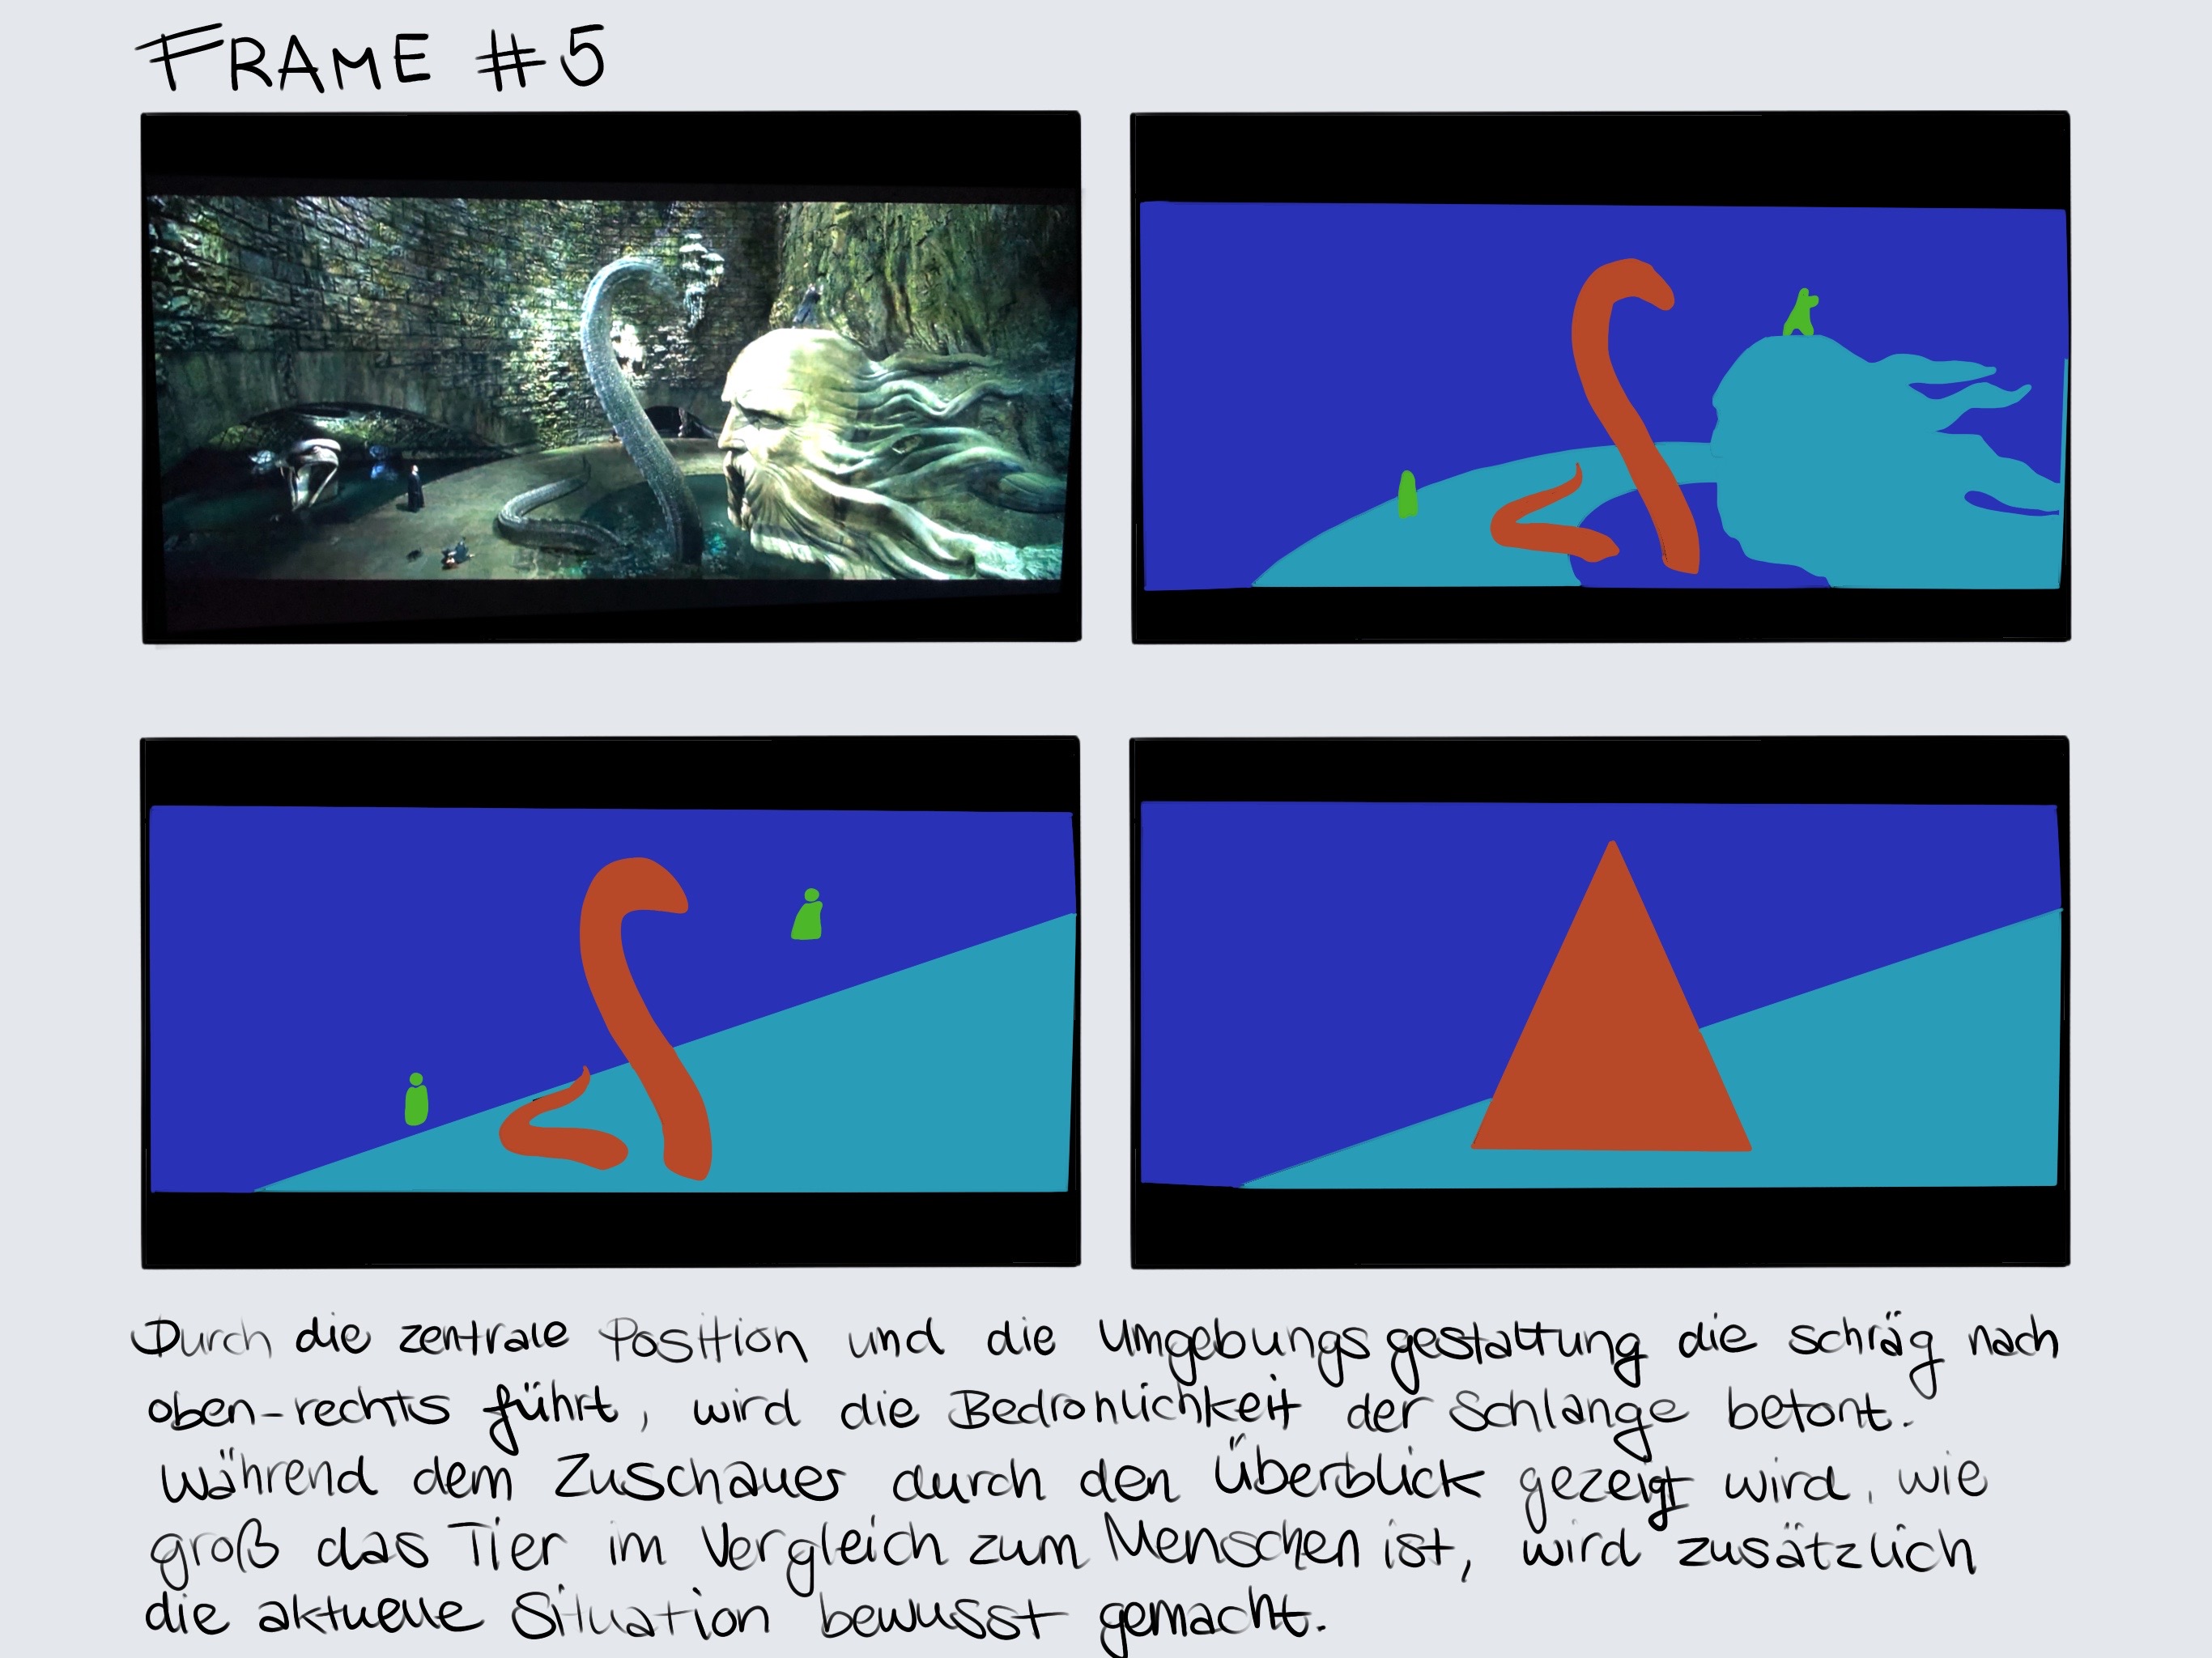 FRAME #5
Durch die zentrale Position und die Umgebungsgestaltung die schräg nach
oben-rechts führt, wird die Bedrohlichkeit der Schlange betont.
Während dem Zuschauer durch den Überblick gezeigt wird, wie
groß das Tier im Vergleich zum Menschen ist, wird zusätzlich
die aktuelle Situation bewusst gemacht.